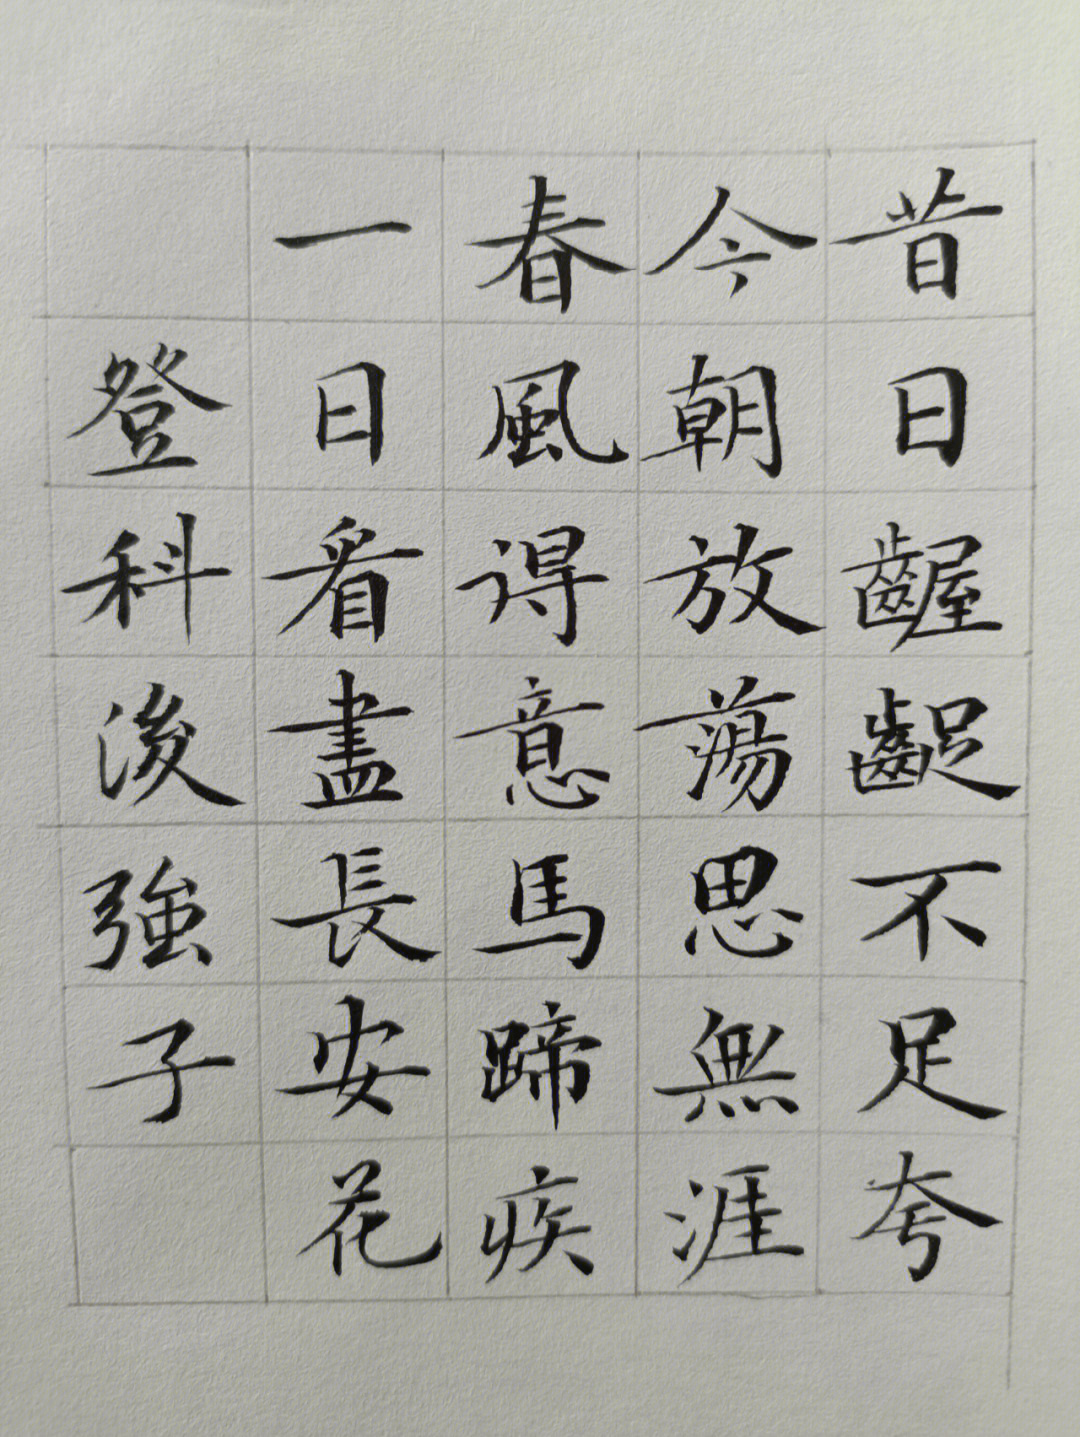 昔日齷齪不足夸
今朝放蕩思無涯
春風得意馬蹄疾
一日看盡長安花
登科後強子